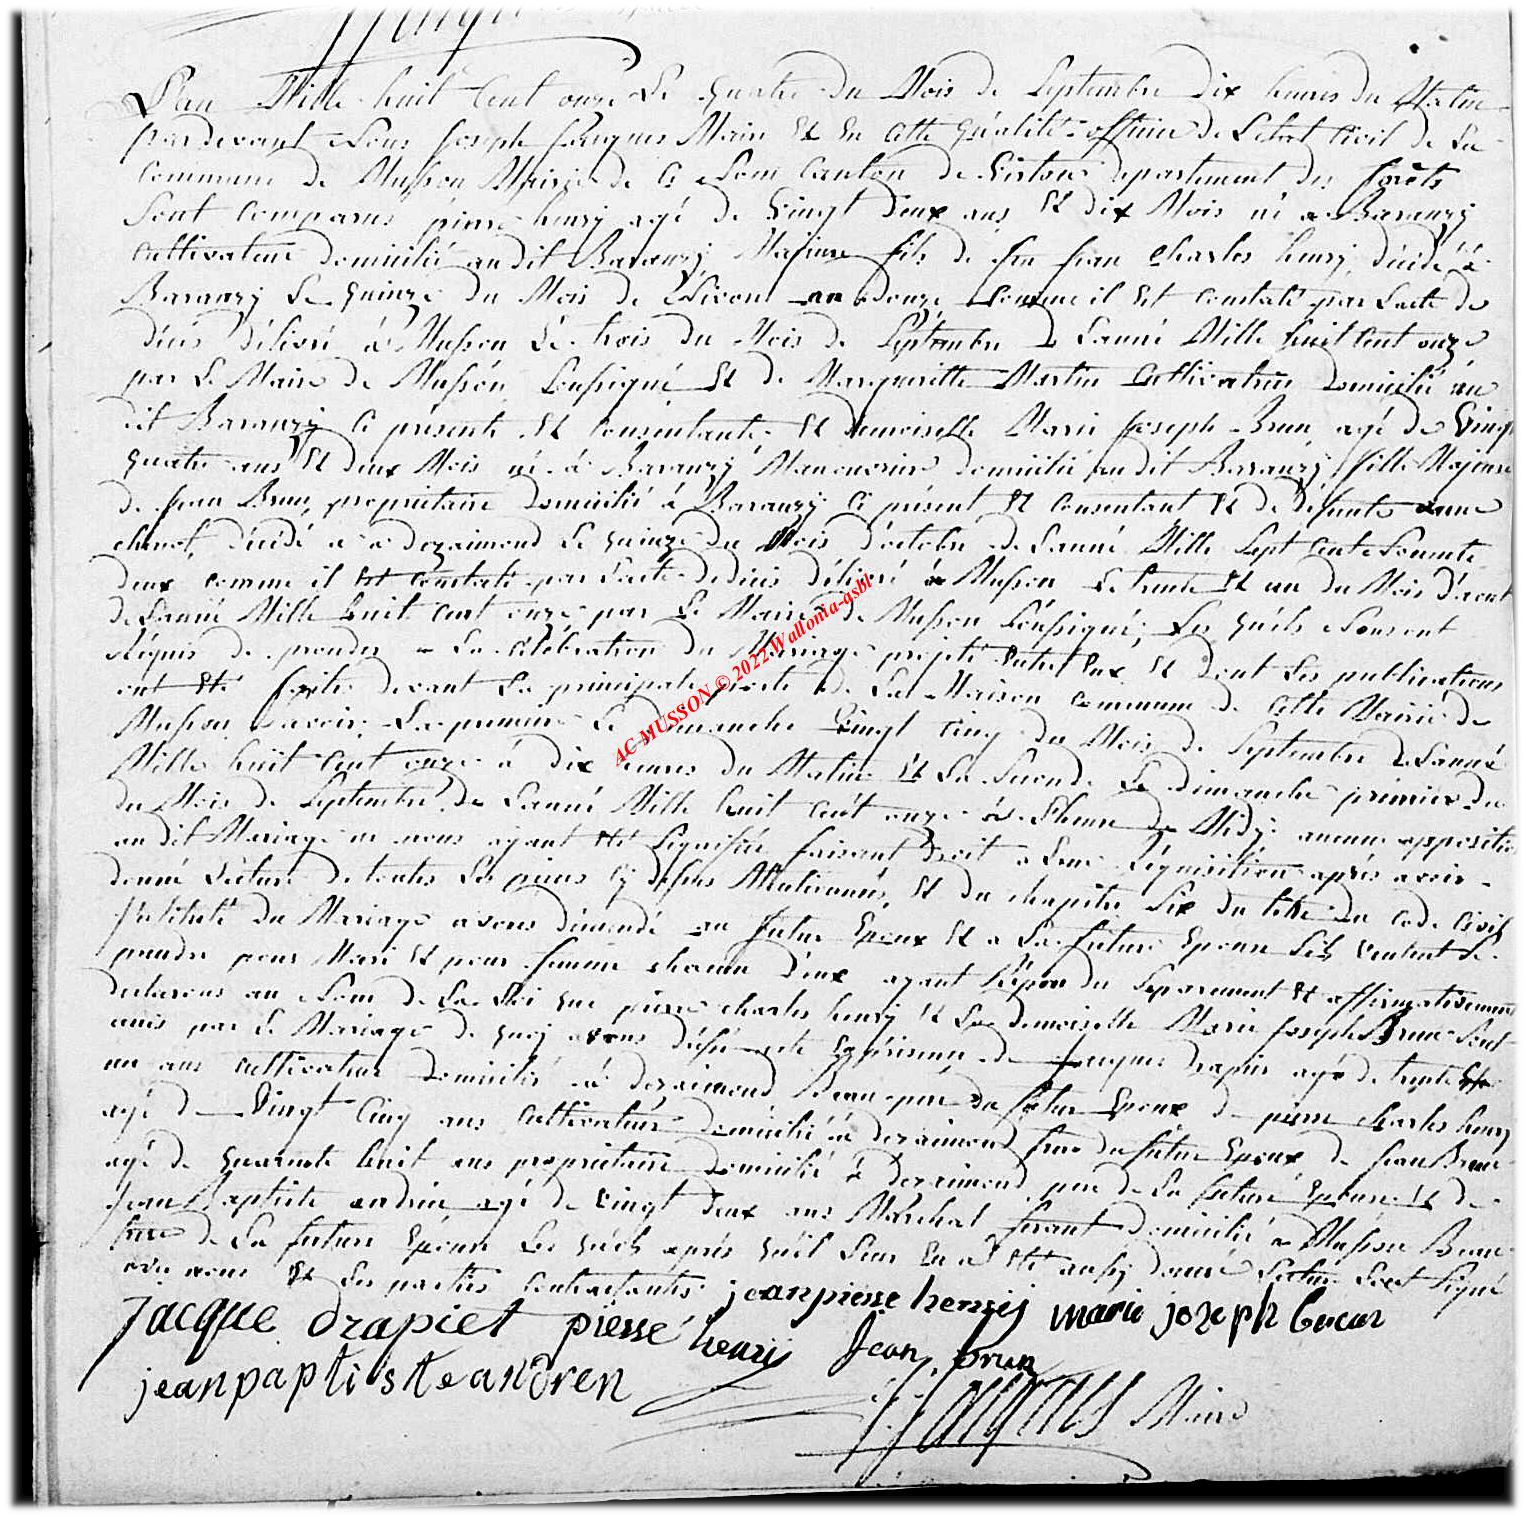 L'an Mille huit Cent onze Le quatre du Mois de Septembre dix heures du Matin
pardevant Nous Joseph Jacques Maire Et En cette qualité officier de L'etat Civil de La
Commune de Musson Mairie de Ce Nom Canton de Virton departement des forêts
Sont Comparus pierre henry agé de Vingt deux ans Et dix Mois né a Baranzy
cultivateur domicilié au dit Baranzy Majeure fils de feu Jean Charles henry décidé à
Baranzy Le quinze du Mois de Nivose an douze comme il Est constaté par Lacte de
décis délivré à Musson Le trois du Mois de Septembre de Lanné Mille huit Cent onze
par Le Maire de Musson Soussigné Et de Margueritte Martin Cultivatrice domicilié au
dit Baranzy Ci présente Et Consentante Et demoiselle Marie Joseph Brun agé de Vingt
quatre ans Et deux Mois né à Baranzy Manouvrire domicilié au dit Baranzy fille Majeure
de Jean Brun, propriétaire domicilié à Baranzy Ci présent Et Consentant Et de défunte anne
décidé a dezaimond Le quinze du Mois d'octobre de Lanné Mille Sept Cent
deux comme il Est Constaté par Lacte de décis délivré à Musson Le trente Et un du Mois d'aout
de Lanné Mille huit Cent onze par Le Maire de Musson Soussigné, Les quels Nous ont
Réquis de procéder a La Célébration du Mariage projeté Entre Eux Et dont Les publications
ont Eté faites devant La principale porte de La Maison commune de Cette Mairie de
Musson Savoir La premiere Le dimanche Vingt Cinq du Mois de Septembre de Lanné
Mille huit Cent onze à dix heures du Matin Et La Seconde Le dimanche premier du
du Mois de Septembre de Lanné Mille huit Cent onze à L'heure de Midy aucune opposition
au dit Mariage ne nous ayant Eté Signifiée faisant droit a Leur Réquisition après avoir
donné Lecture de toutes Les pieces Cy dessus Mentionnés, Et du chapitre Six du titre du Code Civil
Intitulé du Mariage avons démendé au futur Epoux Et a La future Epouse S'ils veulent Se
prendre pour Mari Et pour femme chacun d'eux ayant Répondu Séparement Et affirmativement
declarons au Nom de La Loi que pierre charles henry Et La demoiselle Marie Joseph Brun Sont
unis par Le Mariage de quoi avons dressé acte En présence de Jacque Drapier agé de trente
un ans cultivateur domicilié à dezaimond Beau-pere du futur Epoux de pierre charles henry
agé de Vingt Cinq ans Cultivateur domicilié à dezaimond frere du futur Epoux de Jean Brun
agé de quarante huit ans propriétaire domicilié à dezaimond pere de La future Epouse Et de
Jean Baptiste andrin agé de vingt deux ans Maréchal ferant domicilié a Musson Beau
frere de La future Epouse Les quels après qu'il Leur En a Eté aussi donné Lecture L'ont Signé
avec nous Et Les parties Contractantes. jeanpierre henrij marie jozeph brun
jacque drapiet pierre henrij Jean brun
jeanpaptiste andren
J Jacques Maire
AC MUSSON © 2022 Wallonia-asbl